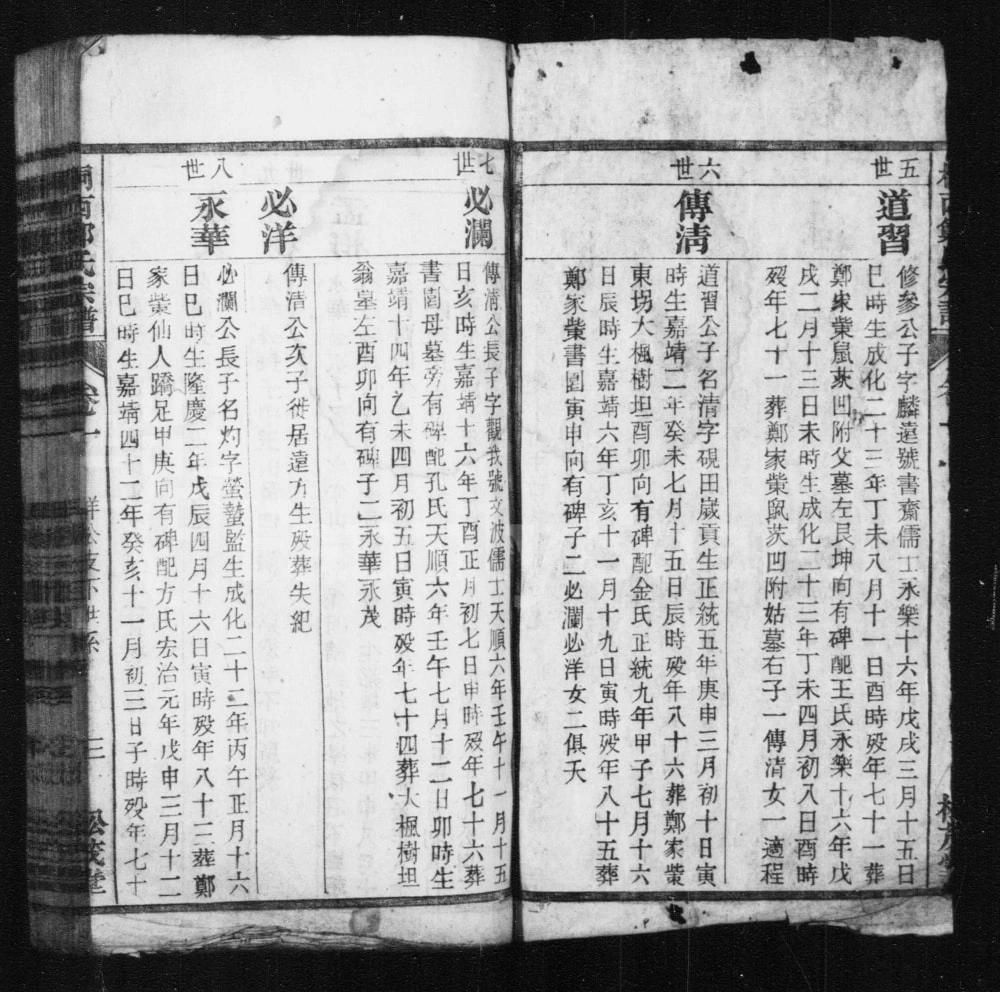 五世
道習
修參公子字麟遠號書齋儒士永樂十六年戊戌三月十五日
巳時生成化二十三年丁未八月十一日酉時殁年七十一葬
鄭家柴鼠茨凹附父墓左艮坤向有碑配王氏永樂十六年戊
戌二月十三日未時生成化二十三年丁未四月初八日酉時
殁年七十一葬鄭家柴鼠茨凹附姑墓右子一傳清女一適程
六世
傳清
道習公子名清字硯田歲貢生正統五年庚申三月初十日寅
時生嘉靖二年癸未七月十五日辰時殁年八十六葬鄭家柴
東拐大楓樹坦酉卯向有碑配金氏正統九年甲子七月十六
日辰時生嘉靖六年丁亥十一月十九日寅時殁年八十五葬
鄭家柴書園寅申向有碑子二必瀾必洋女二俱夭
七世
必瀾
傳清公長子字觀我號文波儒士天順六年壬午十一月十五
日亥時生嘉靖十六年丁酉正月初七日申時殁年七十六葬
書園母墓旁有碑配孔氏天順六年壬午七月十二日卯時生
嘉靖十四年乙未四月初五日寅時殁年七十四葬大楓樹坦
翁墓左酉卯向有碑子二永華永茂
必洋
傳清公次子徙居遠方生殁葬失紀
八世
永華
必瀾公長子名灼字螢蟄監生成化二十二年丙午正月十六
日巳時生隆慶二年戊辰四月十六日寅時殁年八十三葬鄭
家柴仙人蹻足甲庚向有碑配方氏宏治元年戊申三月十二
日巳時生嘉靖四十二年癸亥十一月初三日子時殁年七十
桐西鄭氏宗譜
卷一
三
松茂堂